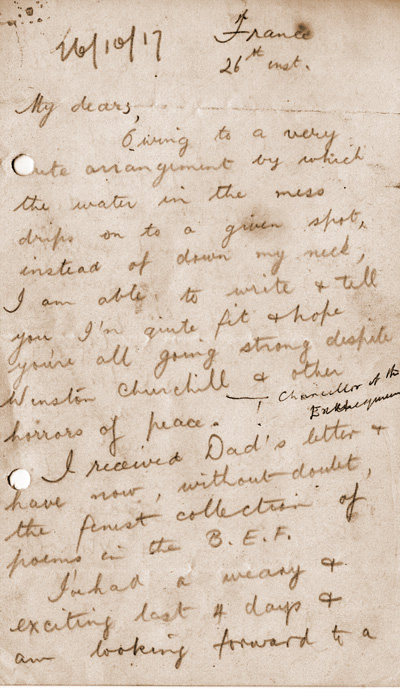 26/10/17
France
26th inst.
My dears,
Owing to a very
cute arrangement by which
the water in the mess
drips on to a given spot,
instead of down my neck,
I am able to write & tell
you I'm quite fit & hope
you're all going strong despite
Winston Churchill & other
Chancellor of the
Exchequer
horrors of peace.
I received Dad's letter &
have now, without doubt,
the finest collection of
poems in the B.E.F.
I've had a weary &
exciting last 4 days &
am looking forward to a